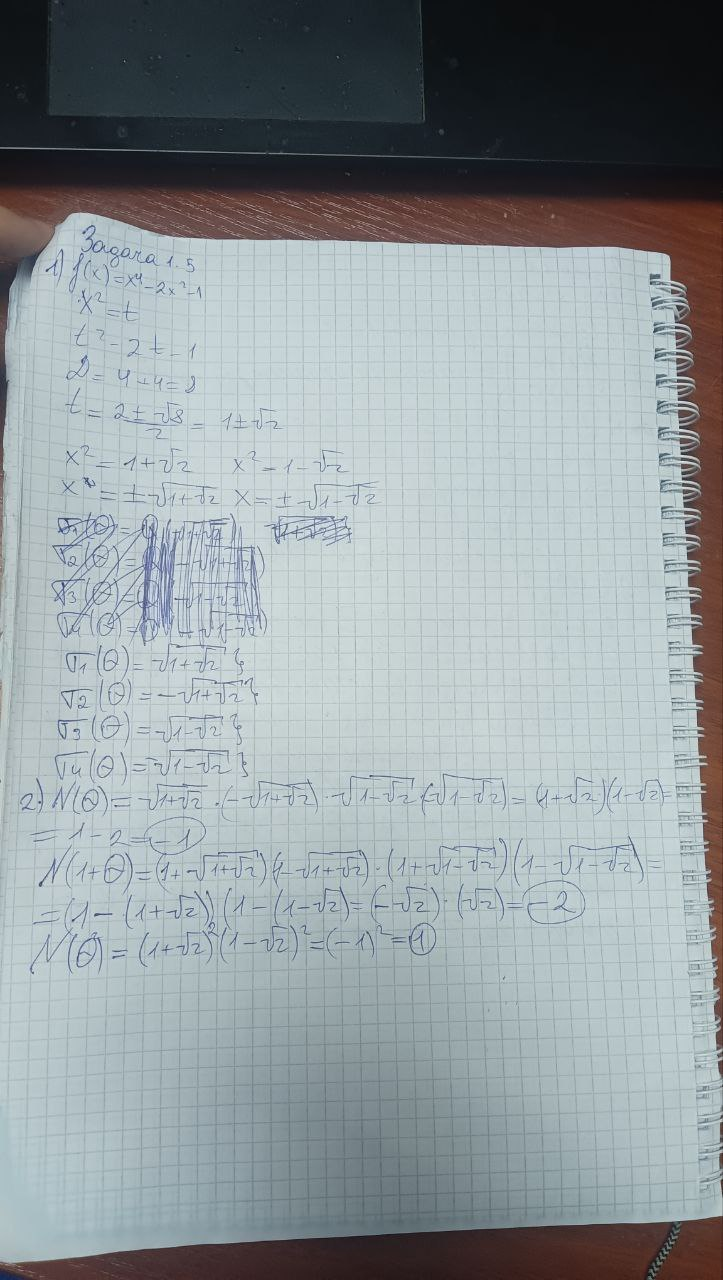 Задача 1.5
1) f(x) = x⁴ - 2x² - 1
x² = t
t² - 2t - 1
D = 4 + 4 = 8
t = (2 ± √8)/2 = 1 ± √2
x² = 1 + √2 x² = 1 - √2
x = ± √(1 + √2) x = ± √(1 - √2)
σ₁(θ) = √(1 + √2) }
σ₂(θ) = -√(1 + √2) }
σ₃(θ) = √(1 - √2) }
σ₄(θ) = -√(1 - √2) }
2) N(θ) = √(1 + √2) · (-√(1 + √2)) · √(1 - √2) · (-√(1 - √2)) = (1 + √2)(1 - √2) =
= 1 - 2 = -1
N(1 + θ) = (1 + √(1 + √2))(1 - √(1 + √2)) · (1 + √(1 - √2))(1 - √(1 - √2)) =
= (1 - (1 + √2))(1 - (1 - √2) = (-√2) · (√2) = -2
N(θ²) = (1 + √2)²(1 - √2)² = (-1)² = 1